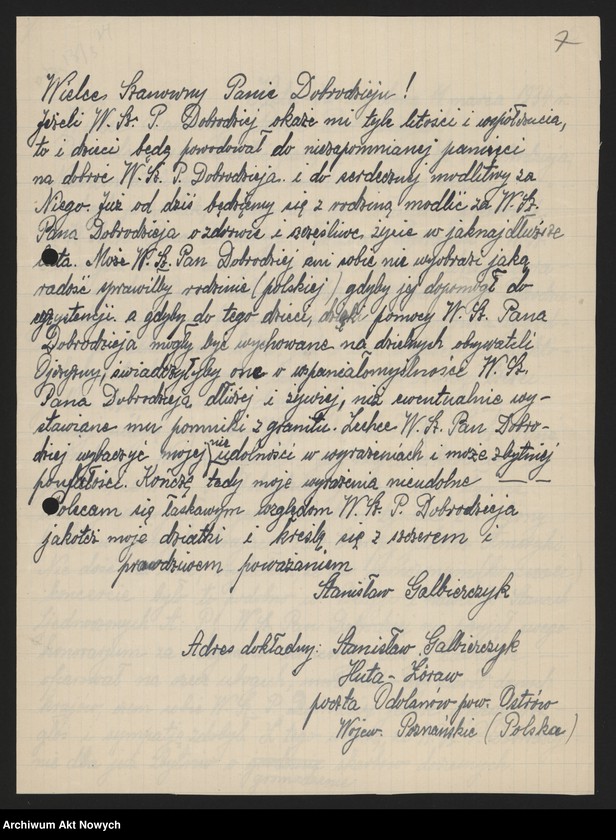 7
Wielce Szanowny Panie Dobrodzieju!
Jeżeli W. Sz. P. Dobrodziej okaże mi tyle litości i współczucia,
to i dzieci będę powodował do niezapomnianej pamięci
na dobroć W. Sz. P. Dobrodzieja i do serdecznej modlitwy za
Niego. Już od dziś będziemy się z rodziną modlić za W. Sz.
Pana Dobrodzieja o zdrowie i szczęśliwe życie w jaknajdłuższe
lata. Może W. Sz. Pan Dobrodziej ani sobie nie wyobrazi jaką
radość sprawiłby rodzinie (polskiej), gdyby jej dopomógł do
egzystencji. a gdyby do tego dzieci, dzięki pomocy W. Sz. Pana
Dobrodzieja mogły być wychowane na dzielnych obywateli
Ojczyzny, świadczyłyby one o wspaniałomyślności W. Sz.
Pana Dobrodzieja dłużej i żywiej, niż ewentualnie wy-
stawiane mu pomniki z granitu. Zechce W. Sz. Pan Dobro-
dziej wybaczyć mojej nieudolności w wyrażeniach i może zbytniej
poufałości. Kończę tedy moje wyrażenia nieudolne
Polecam się łaskawym względom W. Sz. P. Dobrodzieja
jakoteż moje dziatki i kreślę się z szczerem i
prawdziwem poważaniem
Stanisław Galbierczyk
Adres dokładny: Stanisław Galbierczyk
Huta-
poczta Odolanów pow. Ostrów
Wojew. Poznańskie (Polska)
Archiwum Akt Nowych